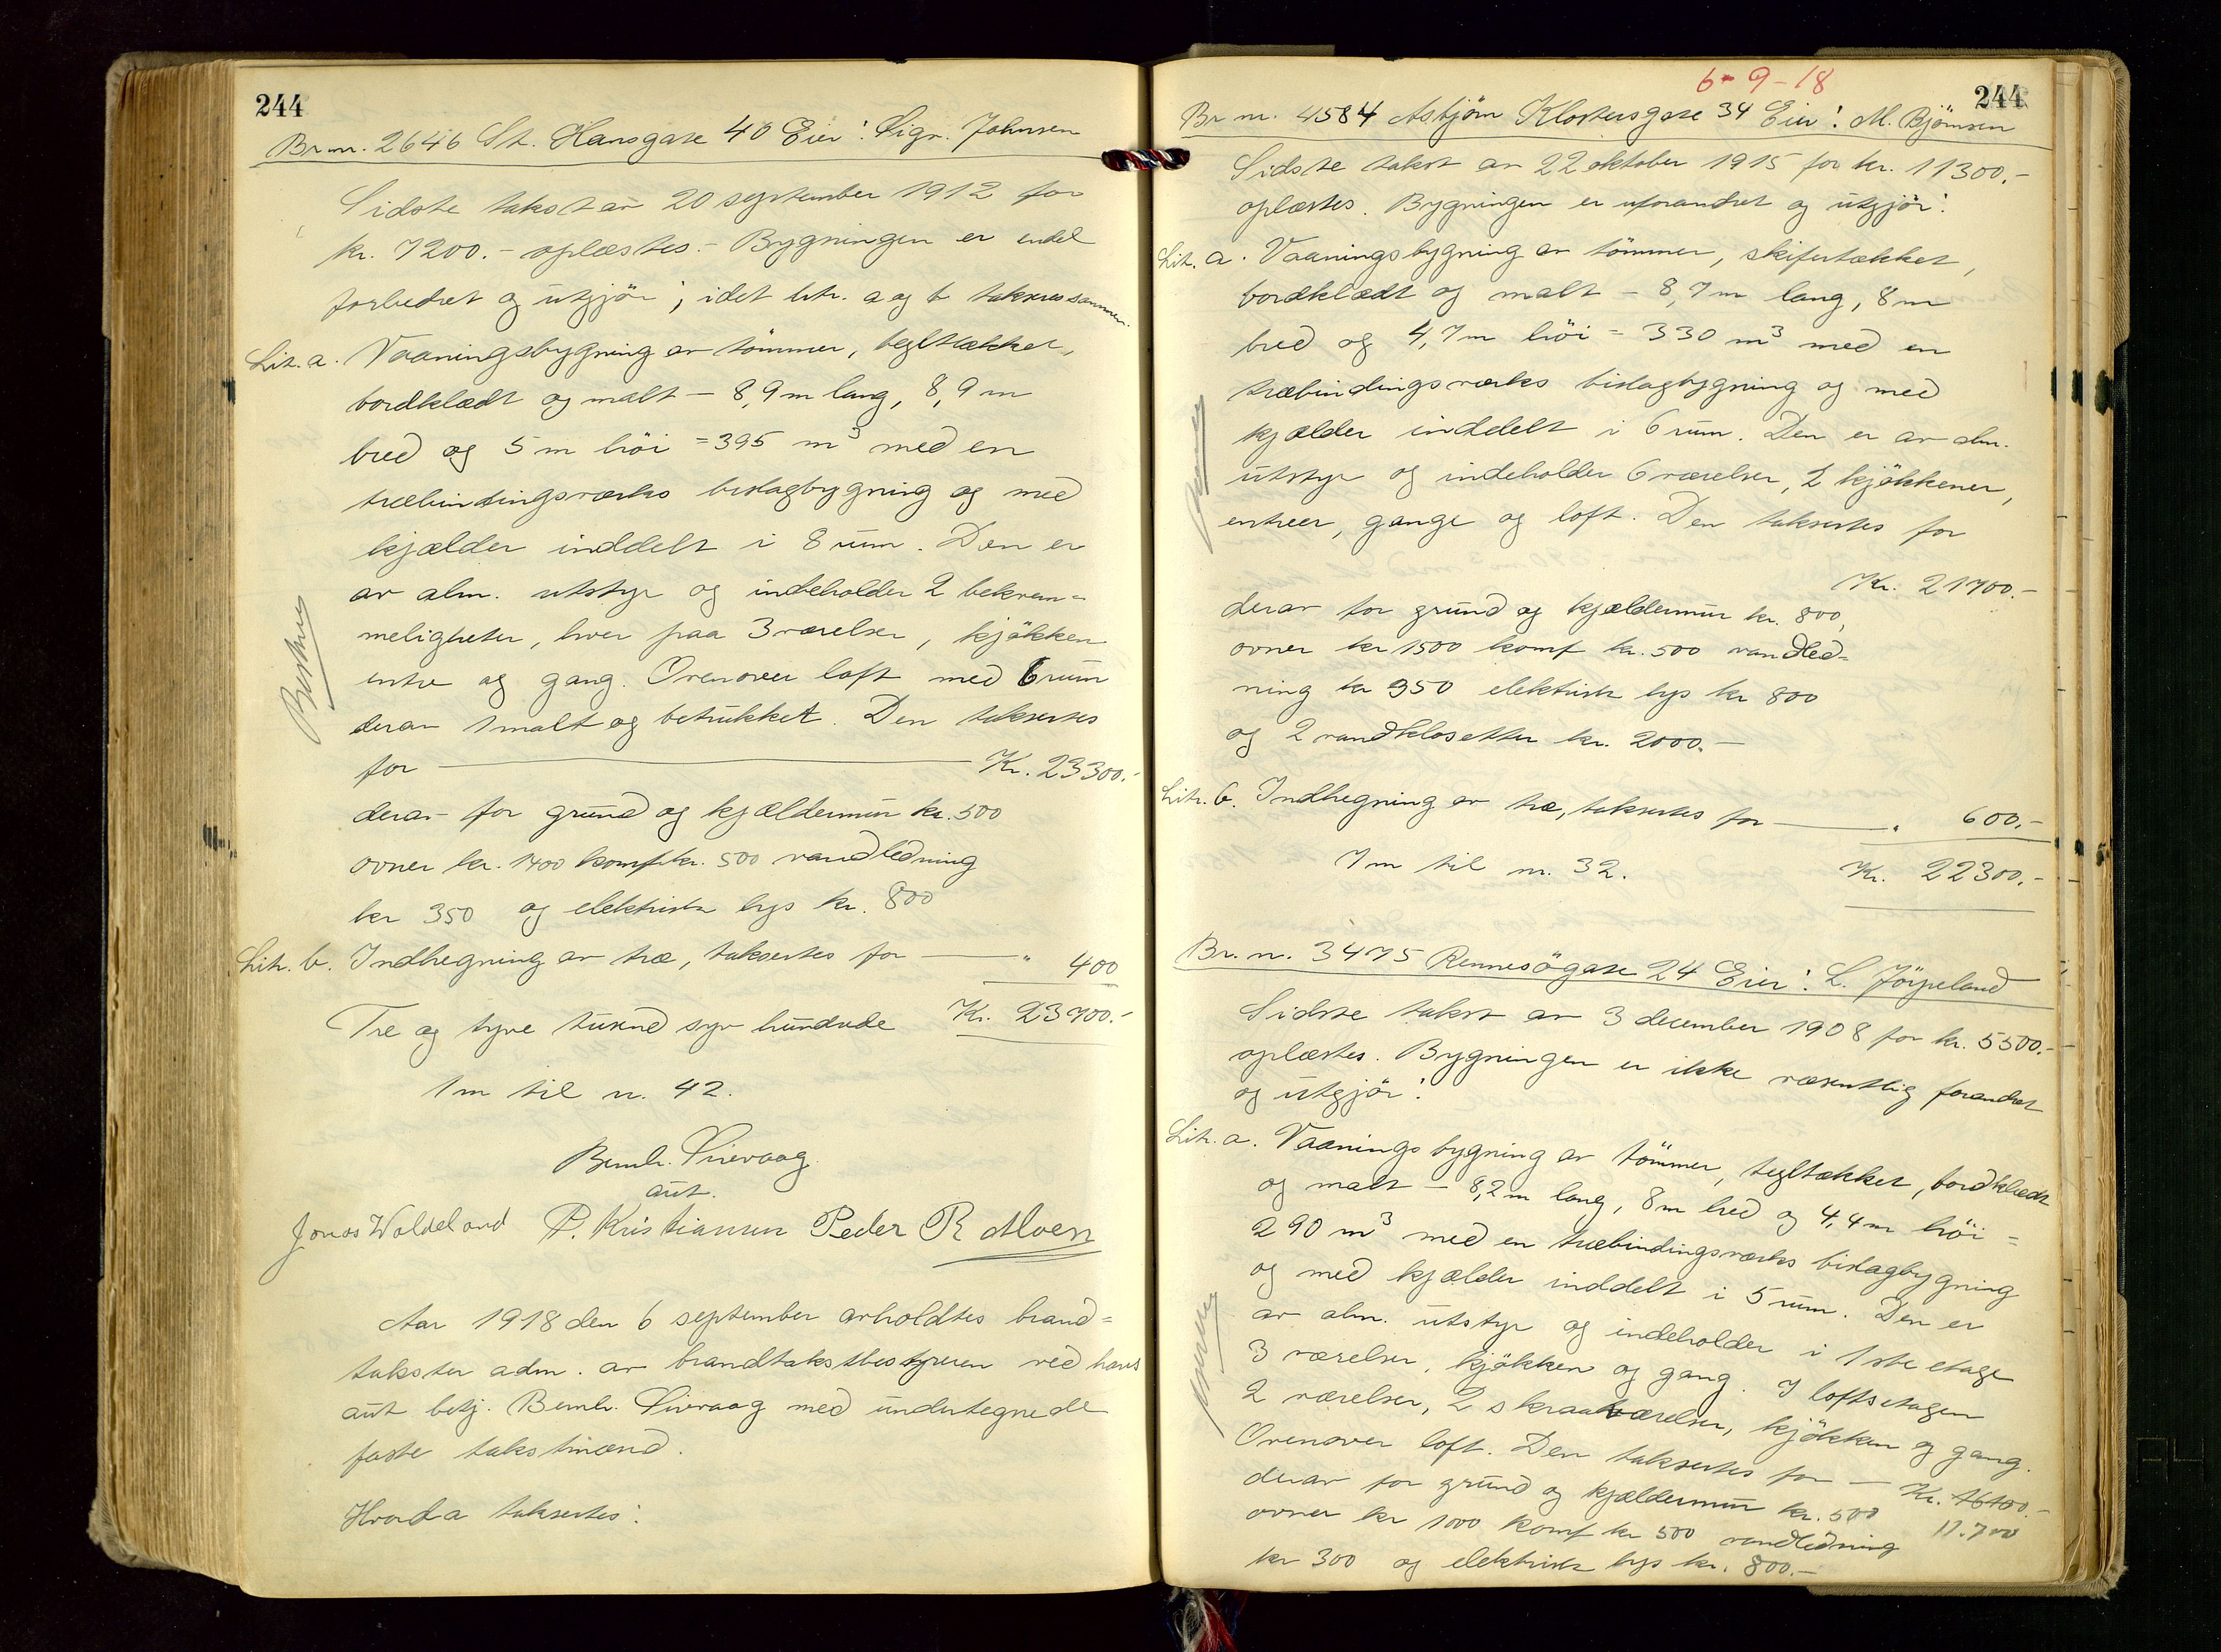 244
Br.nr. 2646 St. Hansgate 40 Eier: Sigv. Johnsen
Sidste takst av 20 september 1912 for
kr. 7200.- oplæstes.- Bygningen er endel
forbedret og utgjör; idet litr. a og b takseres sammen.
Lit. a. Vaaningsbygning av tömmer, tegltækket,
bordklædt og malt - 8,9 m lang, 8,9 m
bred og 5 m höi = 395 m³ med en
træbindingsverks bislagbygning og med
kjælder inddelt i 8 rum. Den er
av alm. utstyr og indeholder 2 bekvem=
meligheter, hver paa 3 værelser, kjökken
entre og gang. Ovenover loft med 6 rum
derav 1 malt og betrukket. Den taksertes
for Kr. 23300.-
derav for grund og kjældermur kr. 500
ovner kr. 1400 komf kr. 500 vandledning
kr 350 og elektrisk lys kr. 800
Litr. b. Indhegning av træ, taksertes for " 400
Tre og tyve tusend syv hundrede Kr. 23700.-
1 m til nr. 42.
Bernh. Sirevaag
aut.
Jonas Waldeland P. Kristiansen Peder R. Moen
Aar 1918 den 6 september avholdtes brand=
takster adm. av brandtakstbestyreren ved hans
aut betj. Bernh. Sirevaag med undertegnede
faste takstmænd.
Hvorda taksertes:
6-9-18
244
Br nr. 4584 Asbjörn Klostersgate 34 Eier: M. Björnsen
Sidste takst av 22 oktober 1915 for kr. 11300.-
oplæstes. Bygningen er uforandret og utgjör:
Lit. a. Vaaningsbygning av tömmer, skifertækket,
bordklædt og malt - 8,7 m lang, 8 m
bred og 4,7 m höi = 330 m³ med en
træbindingsverks bislagbygning og med
kjælder inddelt i 6 rum. Den er av alm.
utstyr og indeholder 6 værelser, 2 kjökkener,
entreer, gange og loft. Den taksertes for
Kr. 21700.-
derav for grund og kjældermur kr. 800,
ovner kr 1500 komf kr. 500 vandled=
ning kr 350 elektrisk lys kr 800
og 2 vandklosetter kr. 2000.-
Litr. b. Indhegning av træ, taksertes for " 600.-
7 m til nr. 32. Kr. 22300.-
Br. nr. 3475 Rennesögate 24 Eier: L. Jörpeland
Sidste takst av 3 december 1908 for kr. 5500.-
oplæstes. Bygningen er ikke væsentlig forandret
og utgjör:
Litr. a. Vaaningsbygning av tömmer, tegltækket, bordklædt
og malt - 8,2 m lang, 8 m bred og 4,4 m höi =
290 m³ med en træbindingsverks bislagbygning
og med kjælder inddelt i 5 rum. Den er
av alm. utstyr og indeholder i 1ste etage
3 værelser, kjökken og gang. I loftsetagen
2 værelser, 2 skraaværelser, kjökken og gang.
Ovenover loft. Den taksertes for - Kr. 16100.-
derav for grund og kjældermur kr. 500 17.700
ovner kr 1000 komf kr 500 vandledning
kr 300 og elektrisk lys kr. 800.-